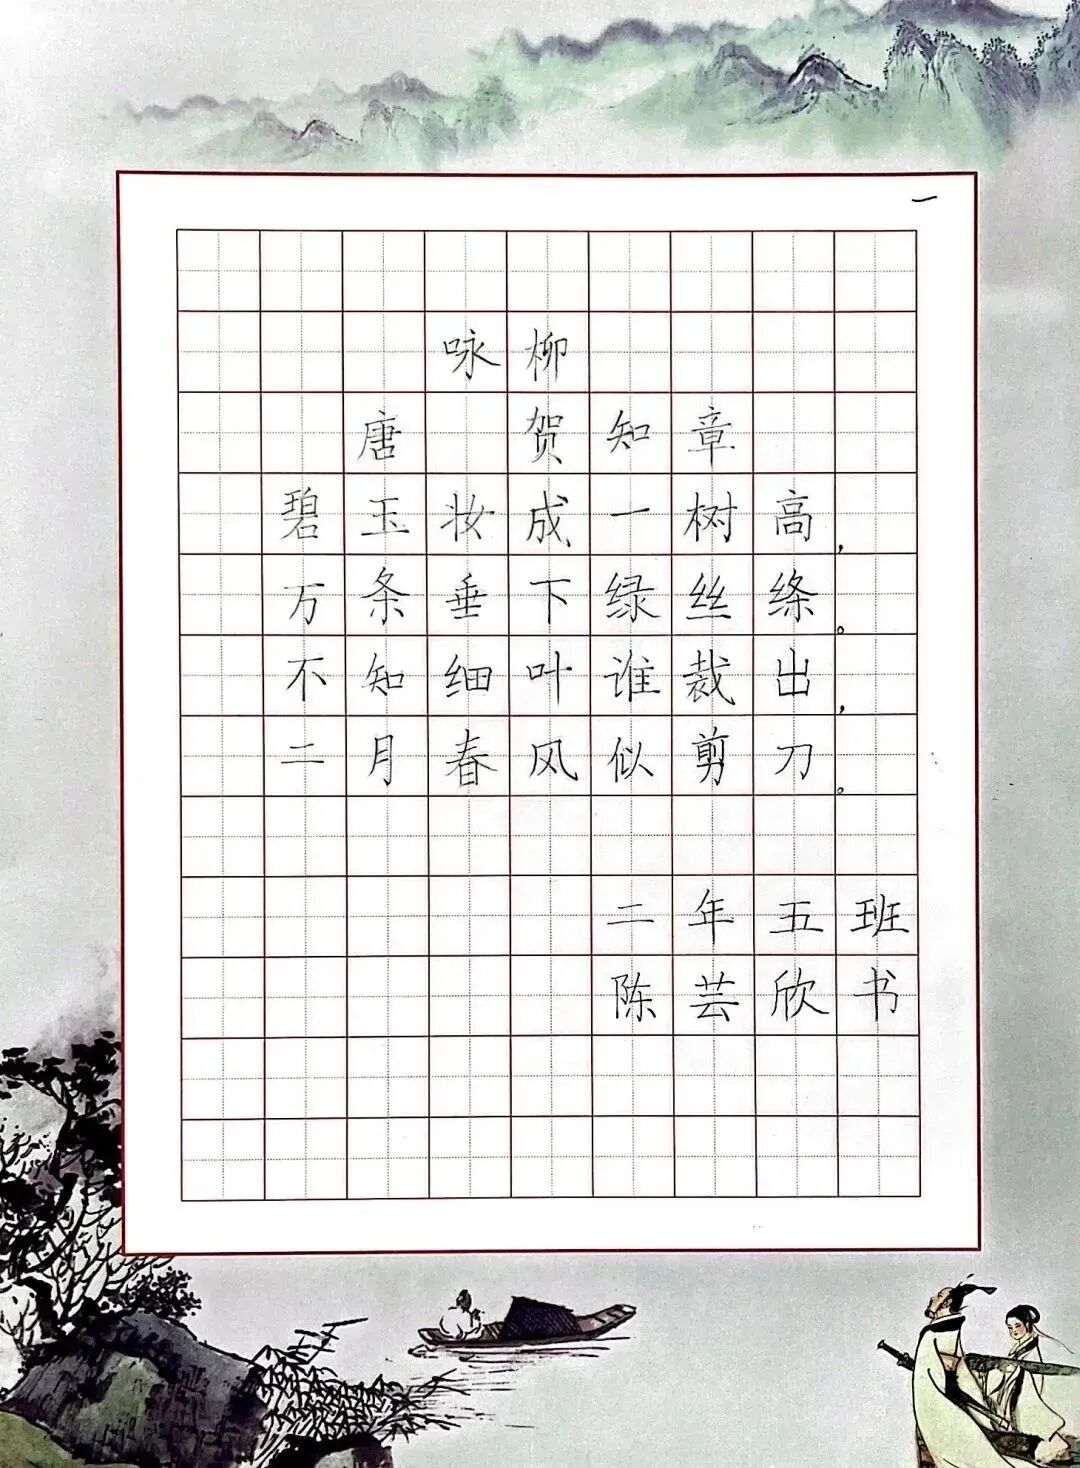 一
咏柳
唐 贺知章
碧玉妆成一树高,
万条垂下绿丝绦。
不知细叶谁裁出,
二月春风似剪刀。
二年五班
陈芸欣书